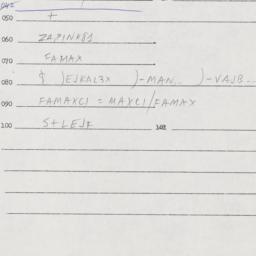 050 +
060 ZAPINK81
070 FAMAX
080 $ )EJKAL3X )-MAN... )-VAJB...
090 FAMAXCI = MAXCI/FAMAX
100 S+LEJF